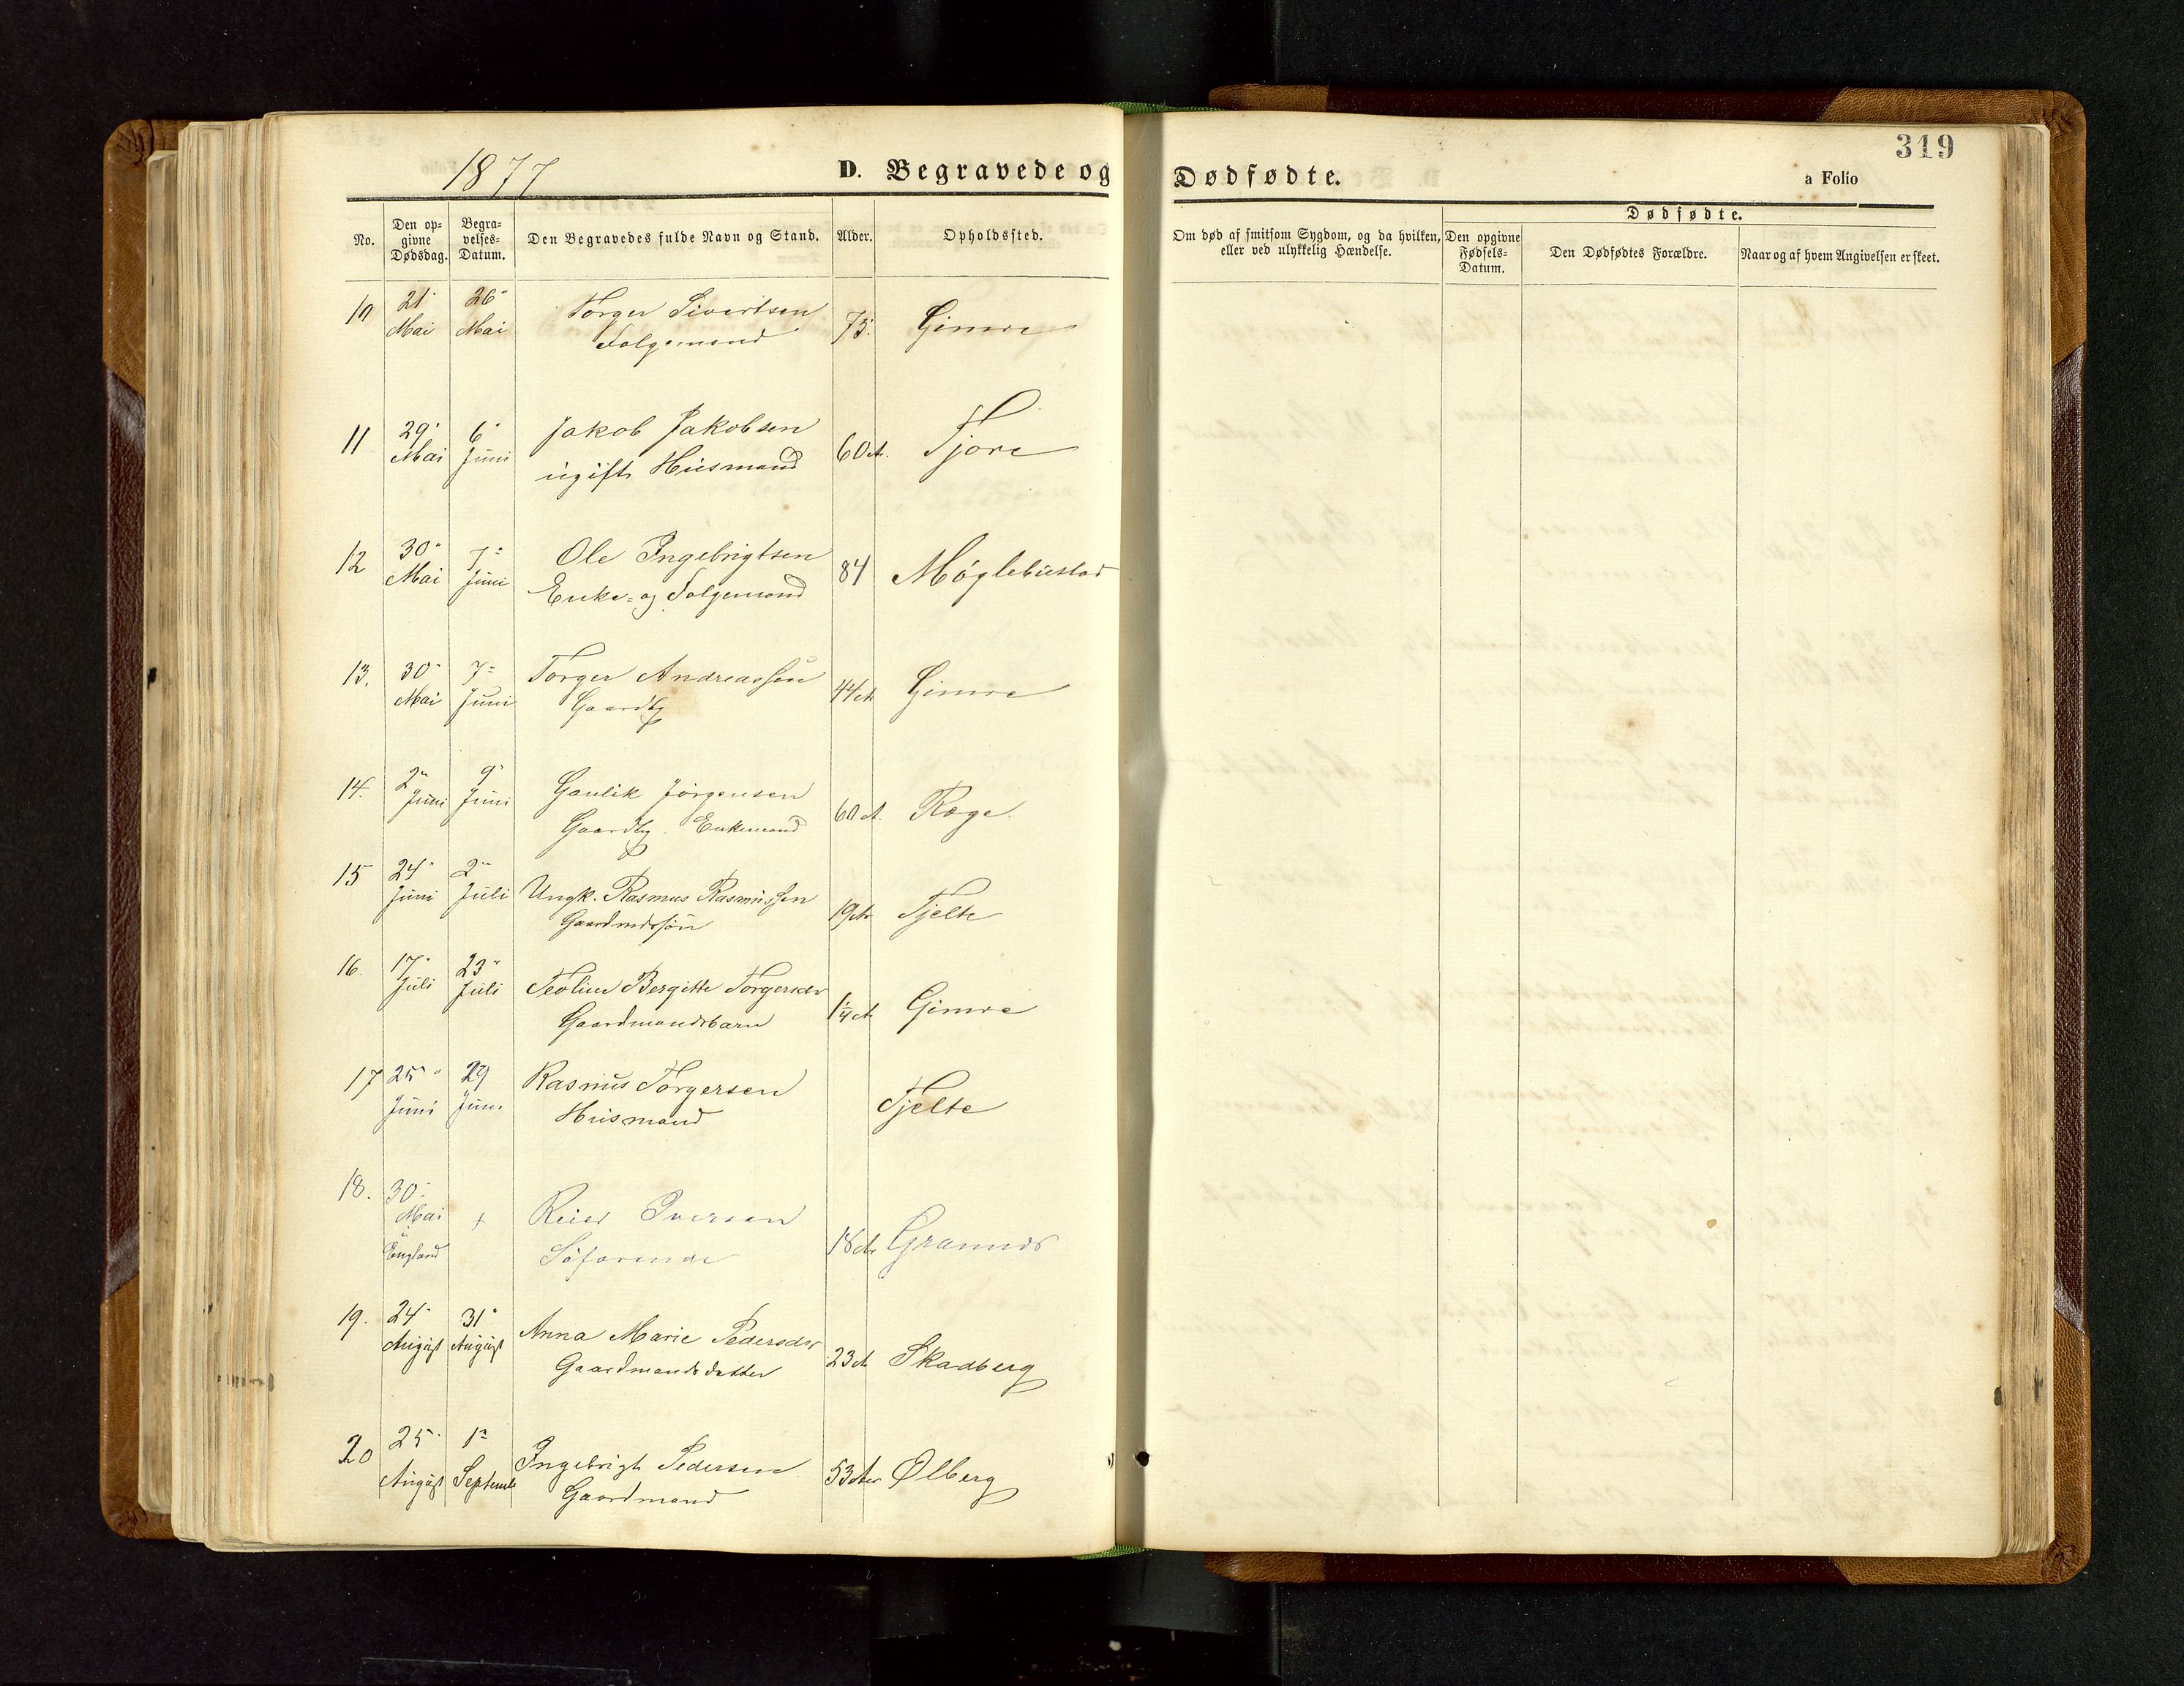 319
1877
D. Begravede og Dødfødte.
a Folio
No.
Den opgivne Dødsdag.
Begravelses-Datum.
Den Begravedes fulde Navn og Stand.
Alder.
Opholdssted.
Om død af smitsom Sygdom, og da hvilken, eller ved ulykkelig Hændelse.
Dødfødte.
Den opgivne Fødsels-Datum.
Den Dødfødtes Forældre.
Naar og af hvem Angivelsen er skeet.
10 21 Mai 26 Mai Torger Sivertsen 75. Gimre
Folgemand
11 29 Mai 6 Juni Jakob Jakobsen 60 A. Tjore
ugift Huismand
12 30 Mai 7 Juni Ole Ingebrigtsen 84 Møglebustad
Enke- og Folgemand
13. 30 Mai 7 Juni Torger Andreassen 44 A Gimre
Gaardbg
14. 2 Juni 9 Juni Gaulik Jørgensen 60 A. Røge.
Gaardbg. Enkemand
15 24 Juni 2 Juli Ungk. Rasmus Rasmussen 19 A Tjelte
Gaardmdssøn
16. 17 Juli 23 Juli Teoline Bergitte Torgersdr 1/4 A Gimre
Gaardmandsbarn
17 25 Juni 29 Juni Rasmus Torgersen Tjelte
Husmand
18. 30 Mai England + Reier Iversen 18 A Grannes
Søfarende
19. 24 August 31 August Anna Marie Pedersdr 23 A Skadberg
Gaardmandsdatter
20 25 August 1 Septembr Ingebrigt Pedersen 53 Aar Ølberg
Gaardmand